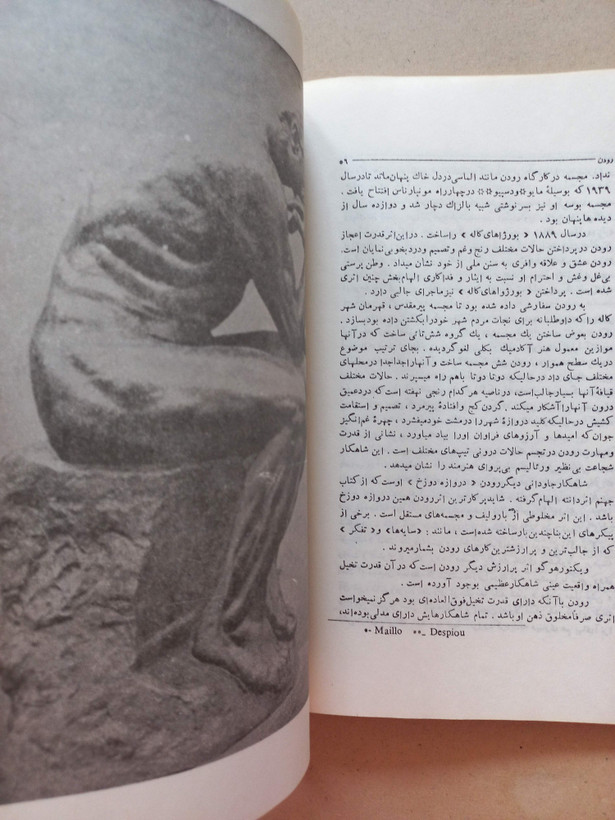 رودن ۶۹
نداد. مجسمه درکارگاه رودن مانند الماسی‌دردل خاك پنهان‌ماند تادرسال
۱۹۳۹ که بوسیلهٔ مایو☼ودسپیو☼☼ درچهارراه مونپارناس افتتاح یافت .
مجسمه بوسه او نیز بسرنوشتی شبیه بالزاك دچار شد و دوازده سال از
دیده‌هاپنهان بود .
درسال ۱۸۸۹ « بورژواهای‌کاله » راساخت . دراین‌اثرقدرت اعجاز
رودن درپرداختن حالات مختلف رنج وغم وتصمیم ودردبخوبی‌نمایان است.
رودن عشق و علاقه وافری به سنن ملی از خود نشان میداد . وطن پرستی
بی‌غل وغش و احترام او نسبت به ایثار و فداکاری الهام‌بخش چنین اثری
شده است . پرداختن « بورژواهای‌کاله » نیزماجرای جالبی دارد .
به رودن سفارشی داده شده بود تا مجسمه پیرمقدس ، قهرمان شهر
کاله راکه داوطلبانه برای نجات مردم شهر خودرابکشتن داده بودبسازد .
رودن بعوض ساختن یك مجسمه ، یك گروه شش‌تائی ساخت که درآنها
موازین معمول هنر آکادمیك بکلی لغوگردیده . بجای ترتیب موضوع
دریك سطح هموار ، رودن شش مجسمه ساخت وآنهاراجداجدا درمحلهای
مختلف جای داد درحالیکه دوتا دوتا باهم راه میسپرند . حالات مختلف
قیافهٔ‌آنها بسیارجالب‌است، درناصیه هرکدام رنجی نهفته است‌که دردعمیق
درون آنهاراآشکار میکند .گردن‌کج وافتادهٔ پیرمرد ، تصمیم و استقامت
کشیش درحالیکه‌کلید دروازهٔ شهررا درمشت خودمیفشرد ، چهرهٔ غم‌انگیز
جوان‌که امیدها و آرزوهای فراوان اورا بیاد میاورد ، نشانی از قدرت
ومهارت رودن درتجسم حالات درونی تیپ‌های مختلف است . این شاهکار
شجاعت بی‌نظیر ورئالیسم بی‌پروای هنرمند را نشان میدهد .
شاهکارجاودانی دیگررودن « دروازه دوزخ » اوست‌که ازکتاب
جهنم اثردانته الهام‌گرفته . شایدپرکارترین اثررودن همین دروازه دوزخ
باشد . این اثر مخلوطی از بارولیف و مجسمه‌های مستقل است . برخی از
پیکرهای این‌بناچندین‌بارساخته شده‌است ، مانند : «سایه‌ها» و« تفکر »
که از جالب‌ترین و پرارزشترین‌کارهای رودن بشمارمیروند .
ویکتورهوگو اثر پرارزش دیگر رودن است‌که درآن قدرت تخیل
همراه واقعیت عینی شاهکارعظیمی بوجود آورده است .
رودن باآنکه دارای قدرت تخیل‌فوق‌العاده‌ای بود هرگز نمیخواست
اثری صرفاًمخلوق ذهن اوباشد . تمام شاهکارهایش دارای مدلی‌بوده‌اند،
*- Maillo **_ Despiou